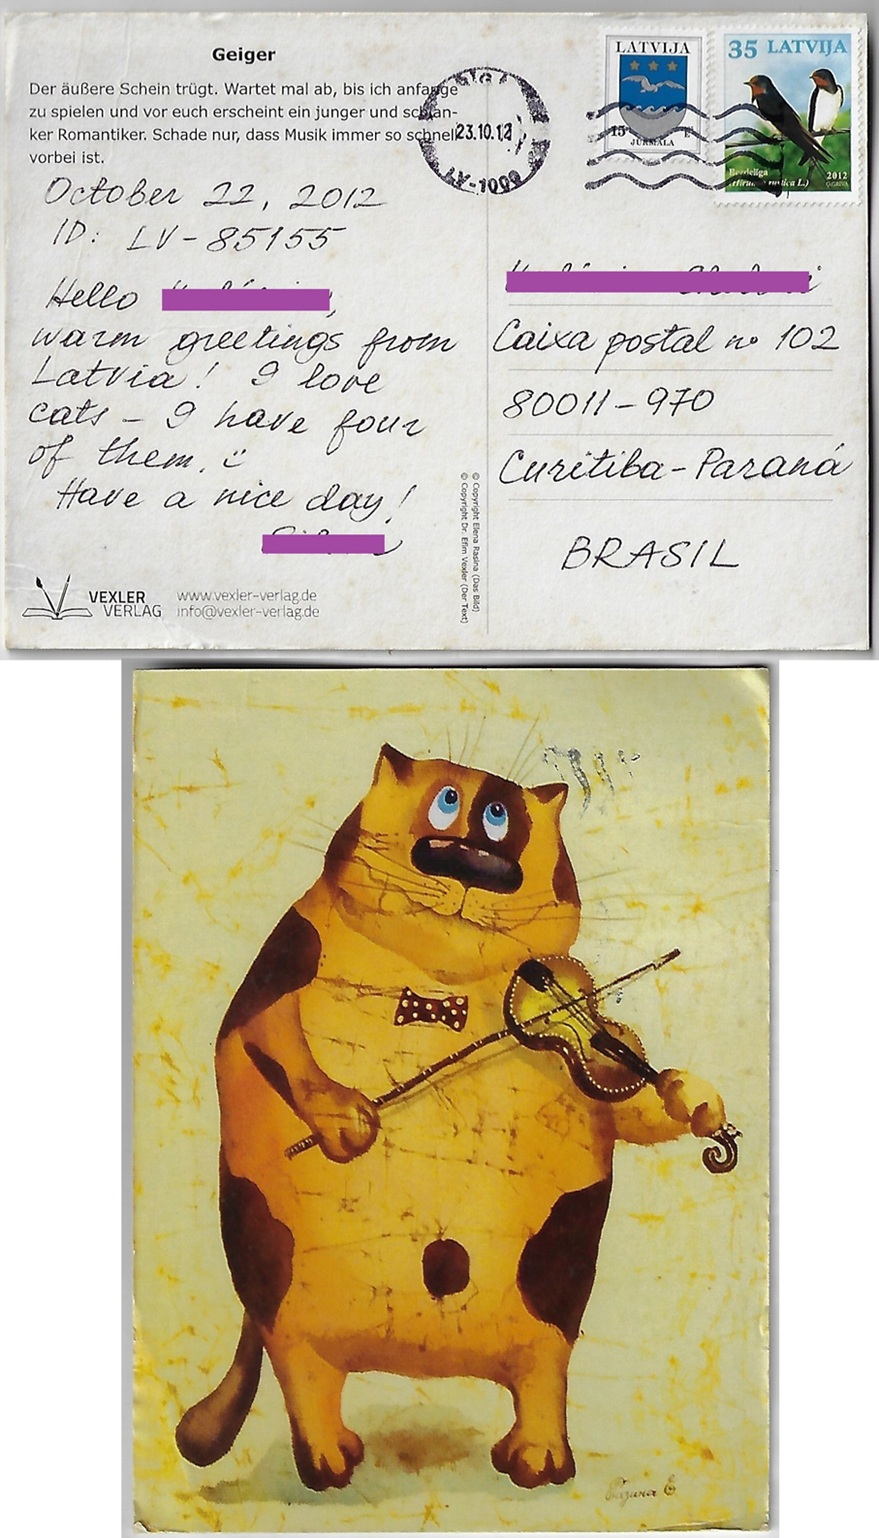 Geiger
Der äußere Schein trügt. Wartet mal ab, bis ich anfange
zu spielen und vor euch erscheint ein junger und schlan-
ker Romantiker. Schade nur, dass Musik immer so schnell
vorbei ist.
October 22, 2012
ID: LV-85155
Hello
warm greetings from
Latvia! I love
cats - I have four
of them. ü
Have a nice day!
VEXLER
VERLAG
www.vexler-verlag.de
info@vexler-verlag.de
© Copyright Elena Rasina (Das Bild)
© Copyright Dr. Efim Vexler (Der Text)
23.10.12
LV-1000
LATVIJA
15
JŪRMALA
35 LATVIJA
Bezdelīga
(Hirundo rustica L.)
2012
Caixa postal nº 102
80011-970
Curitiba-Paraná
BRASIL